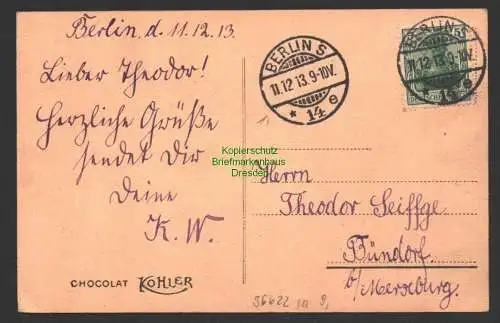 Berlin, d. 11.12.13.
Lieber Theodor!
Herzliche Grüße
sendet Dir
Deine
K. W.
CHOCOLAT KOHLER
BERLIN S
11.12.13.9-10V.
* 14 e
BERLIN S
11.12.13.9-10V.
* 14 e
Kopierschutz
Briefmarkenhaus
Dresden
Herrn
Theodor Seiffge
Bündorf
b/Merseburg.